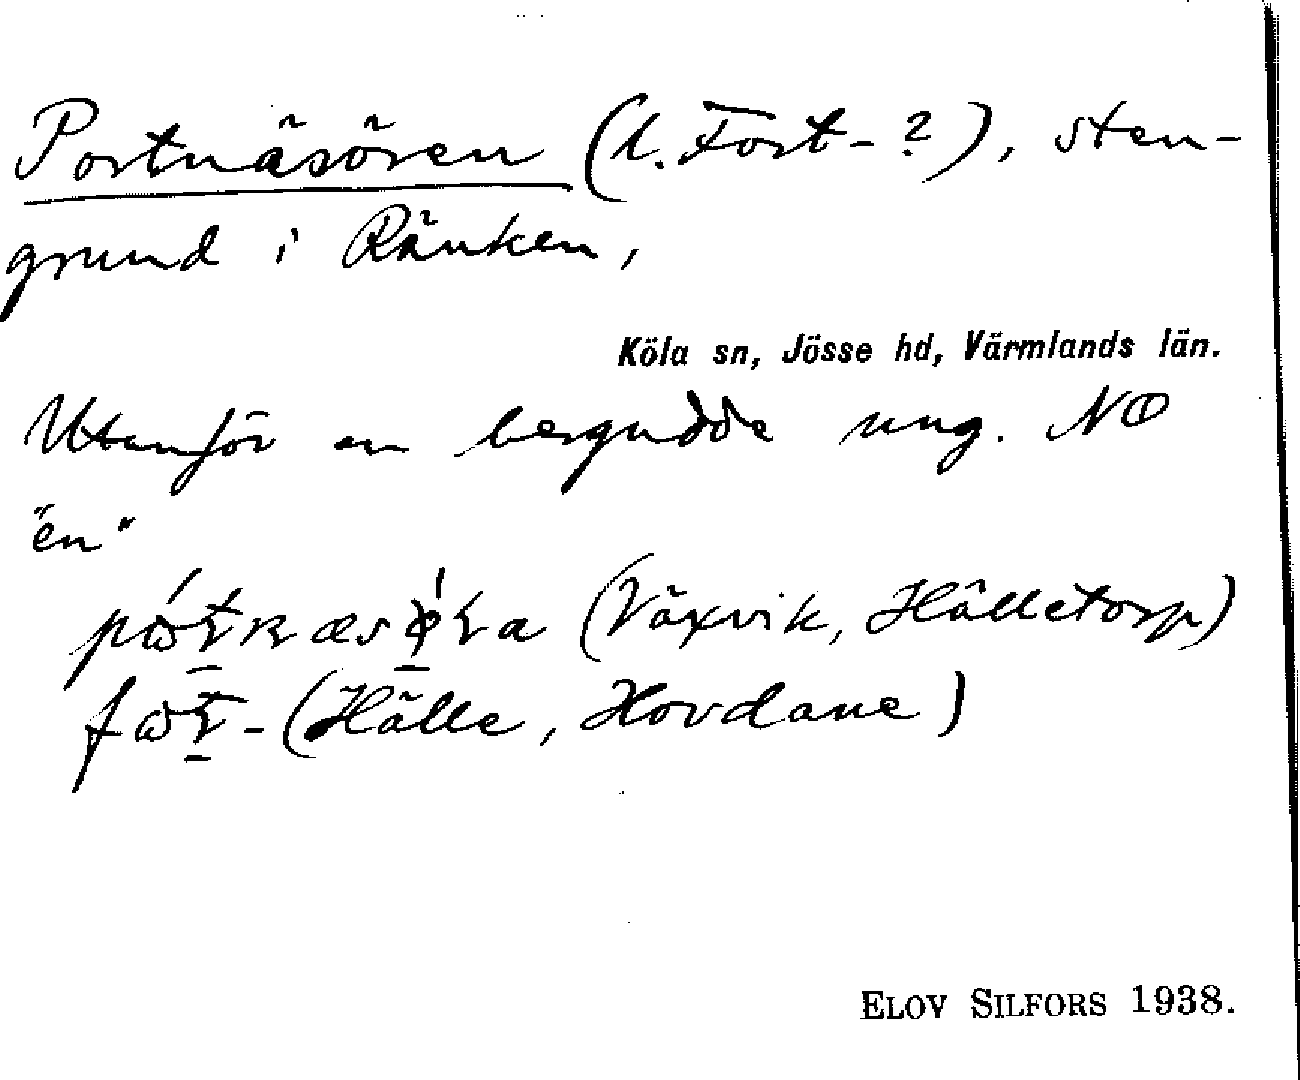 Portnäsören (l. Fort- ?), sten-
grund i Ränken,
Köla sn, Jösse hd, Värmlands län.
Utanför en bergudde ung. NO
"en"
(Växvik, Hälletorp)
(Hälle, Hovdane)
ELOV SILFORS 1938.